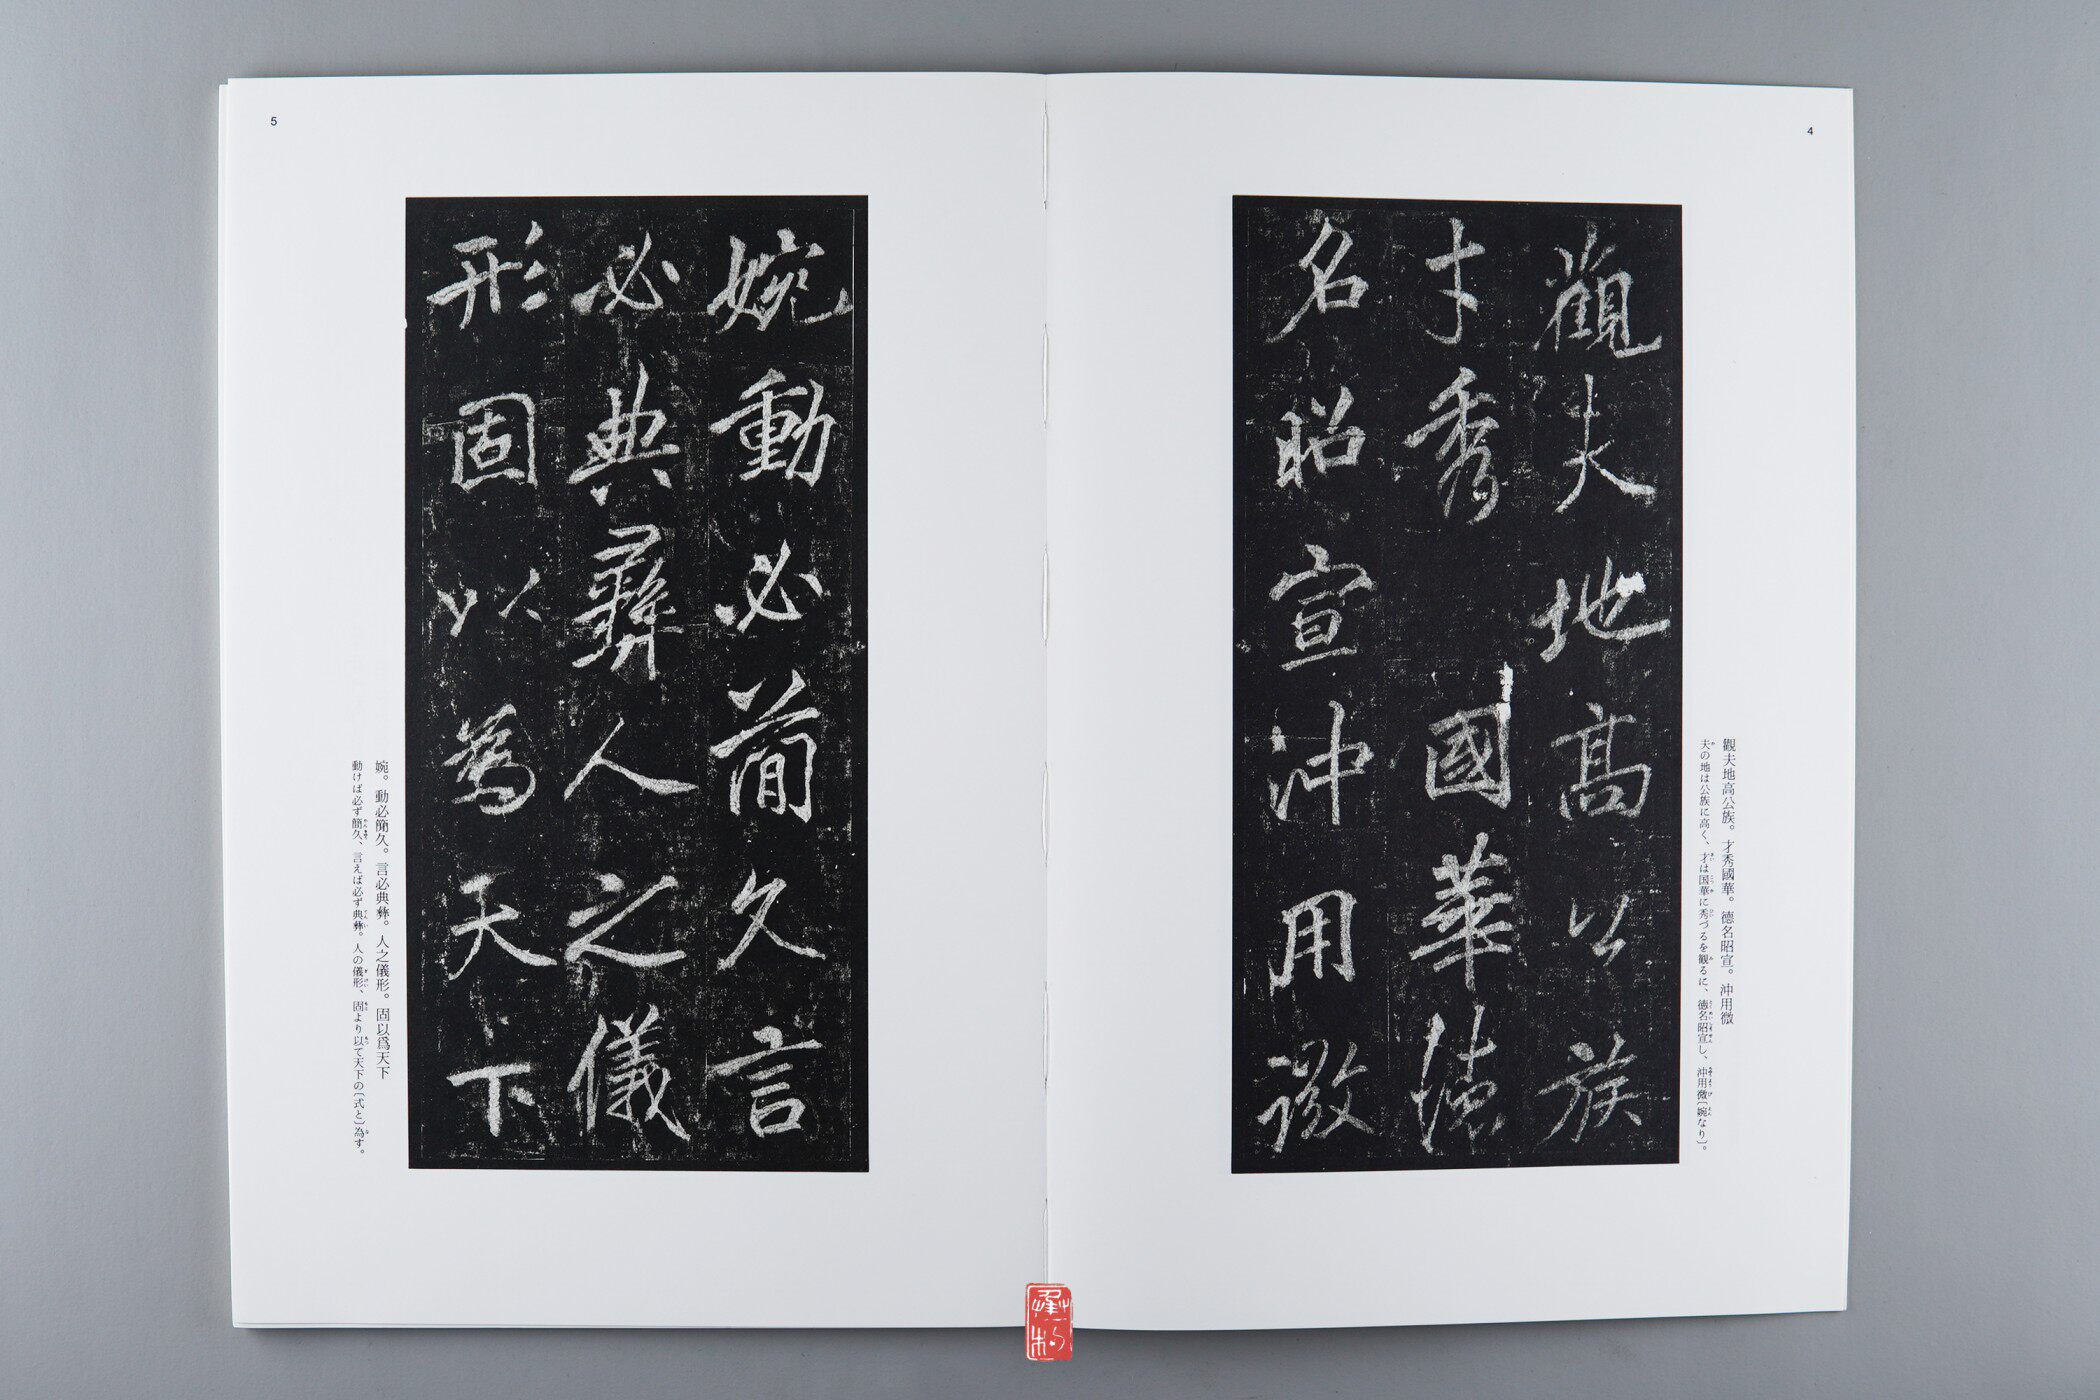 4
觀夫地高公族
才秀國華德
名昭宣沖用微
觀夫地高公族。才秀國華。德名昭宣。沖用微
夫の地は公族に高く、才は国華に秀づるを観るに、徳名昭宣し、沖用微〔婉なり〕。
5
婉動必簡久言
必典彝人之儀
形固以為天下
婉。動必簡久。言必典彝。人之儀形。固以爲天下
動けば必ず簡久、言えば必ず典彝。人の儀形、固より以て天下の〔式と〕為す。